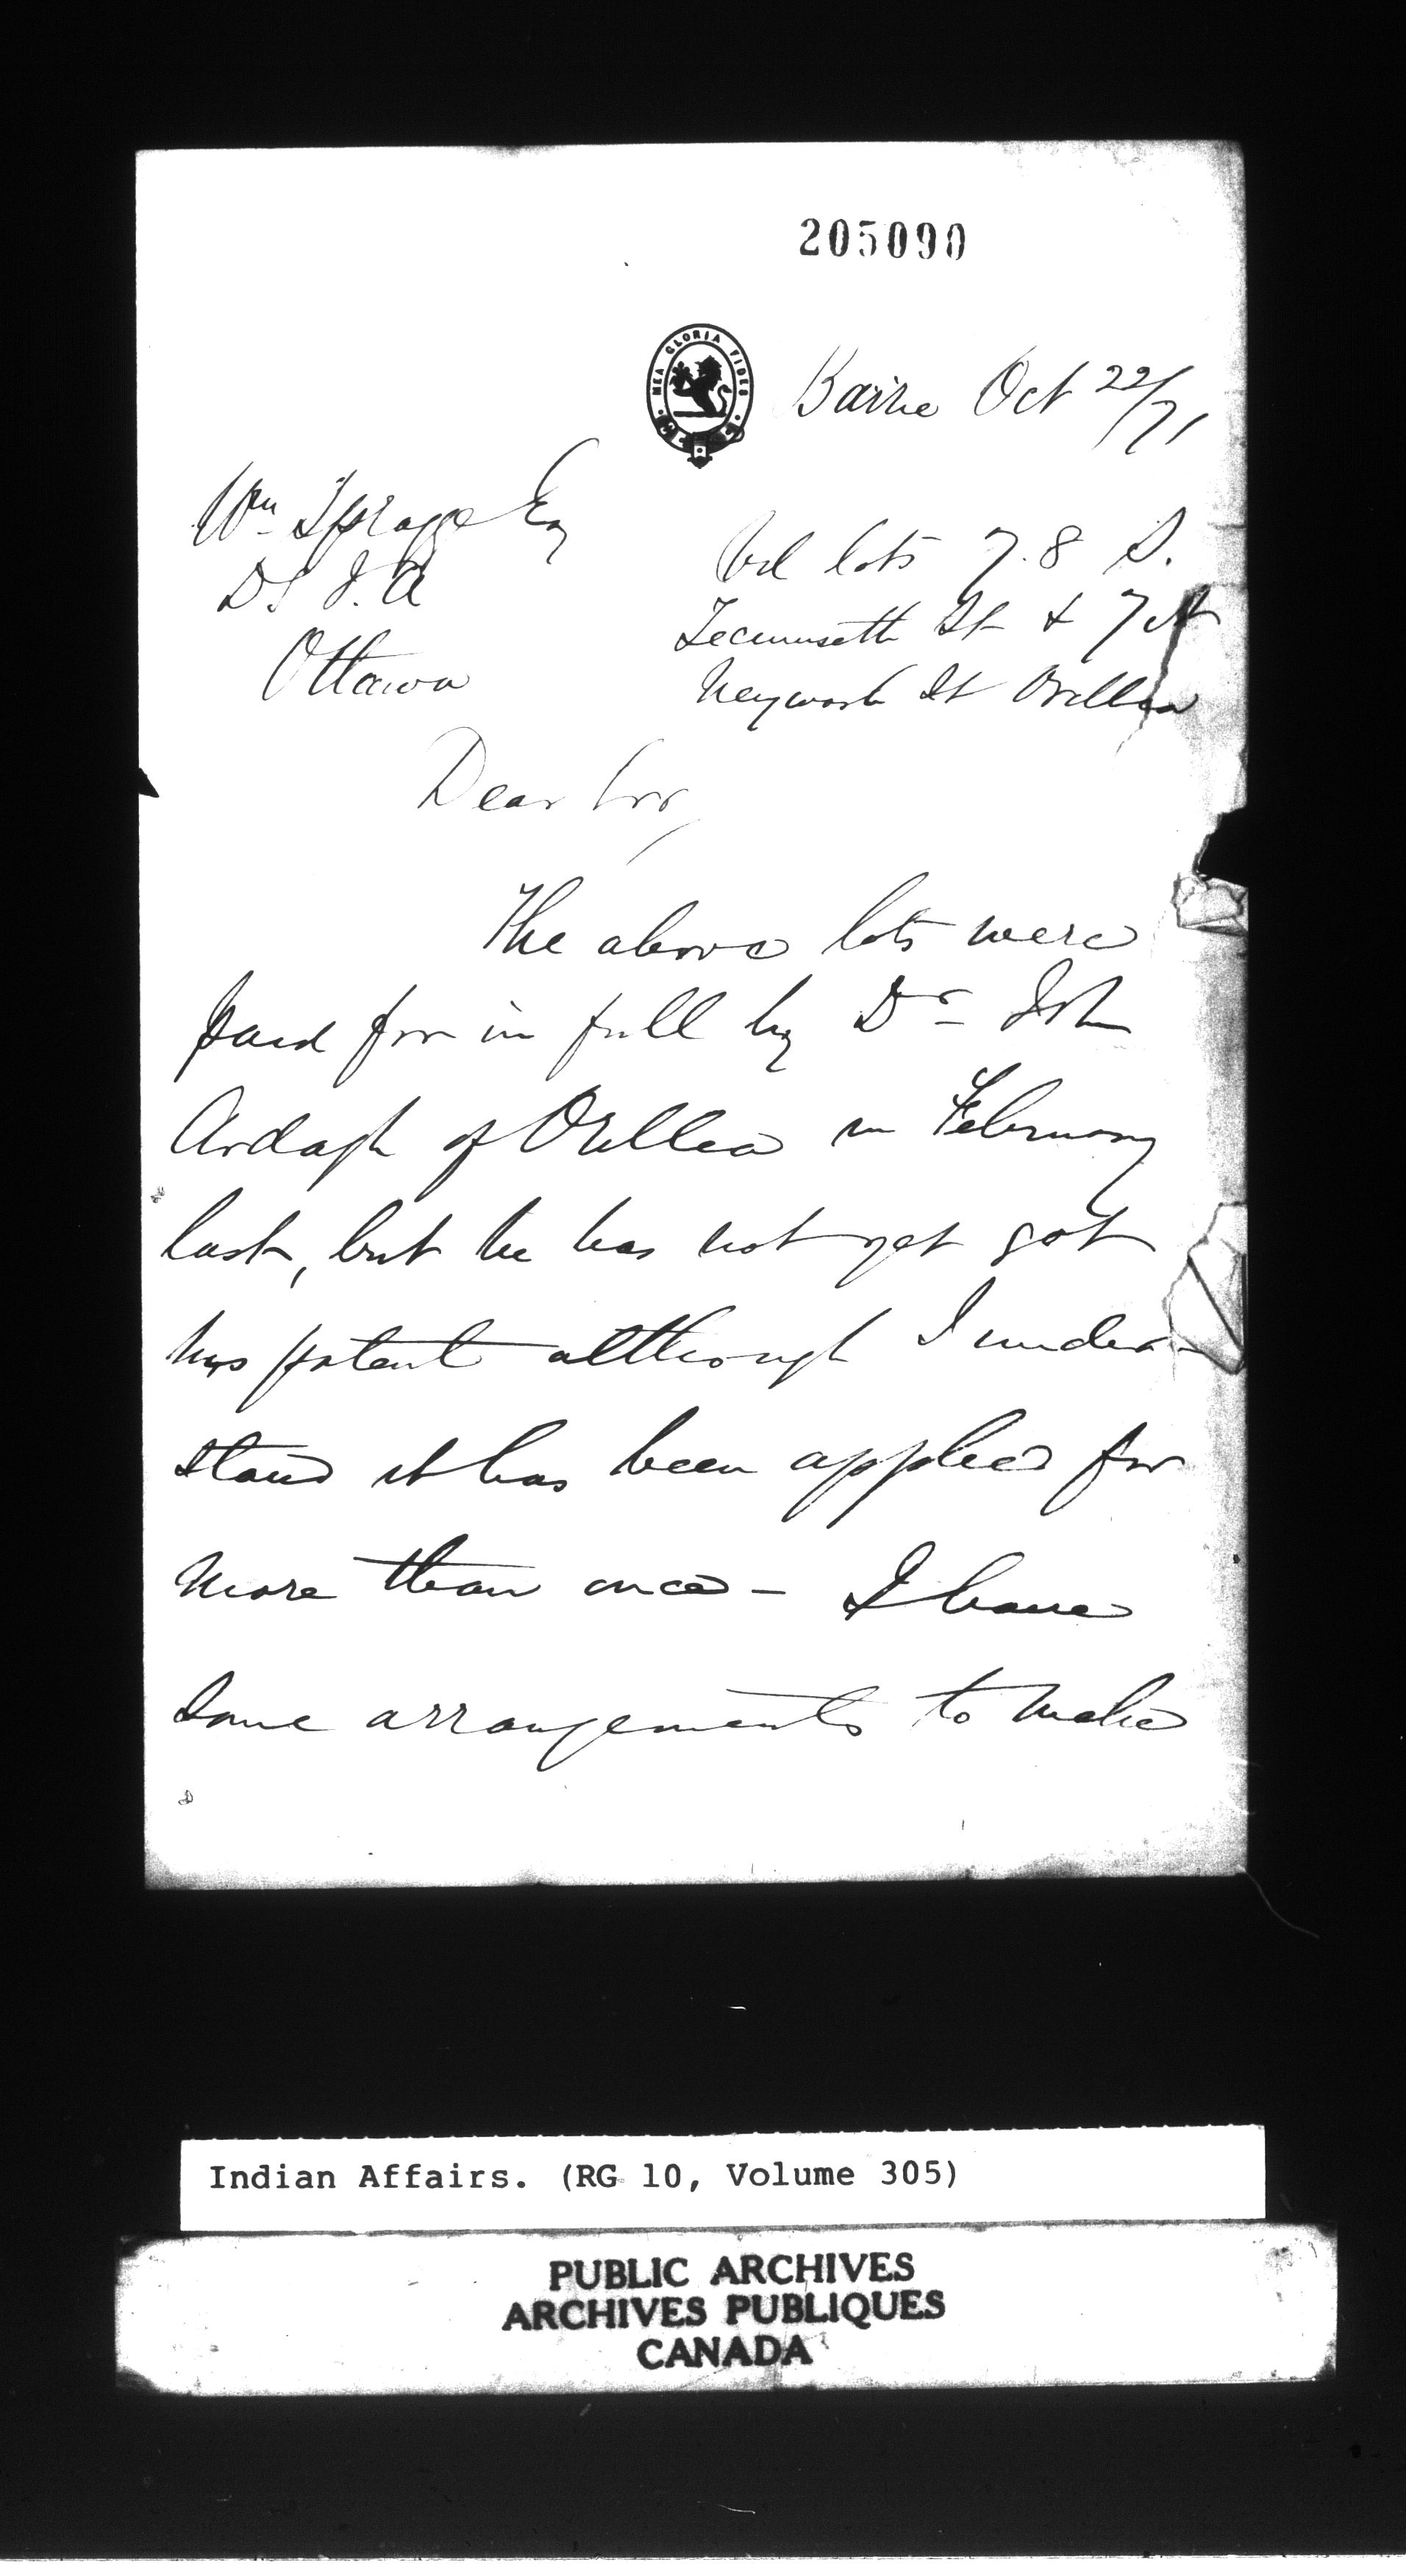 205090
MEA GLORIA FIDES
Barrie Oct 22/71
Wm Spragge Esq
D.S I. A
Ottawa
lots 7. 8 S.
Tecumseth St & 7 N
Neywash St Orillia
Dear Sir,
The above lots were
paid for in full by Dr John
Ardagh of Orillia in February
last, but he has not yet got
his patent although I under-
stand it has been applied for
more than once - I have
some arrangements to make
Indian Affairs. (RG 10, Volume 305)
PUBLIC ARCHIVES
ARCHIVES PUBLIQUES
CANADA